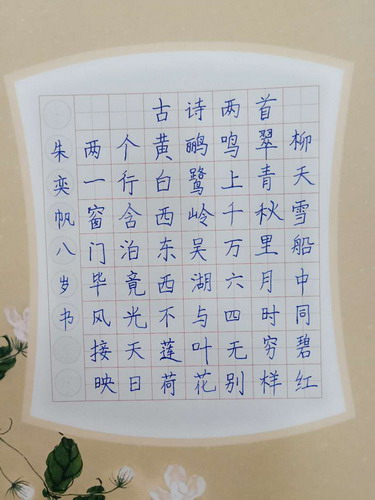 古诗两首
两个黄鹂鸣翠柳
一行白鹭上青天
窗含西岭千秋雪
门泊东吴万里船
毕竟西湖六月中
风光不与四时同
接天莲叶无穷碧
映日荷花别样红
朱奕帆八岁书